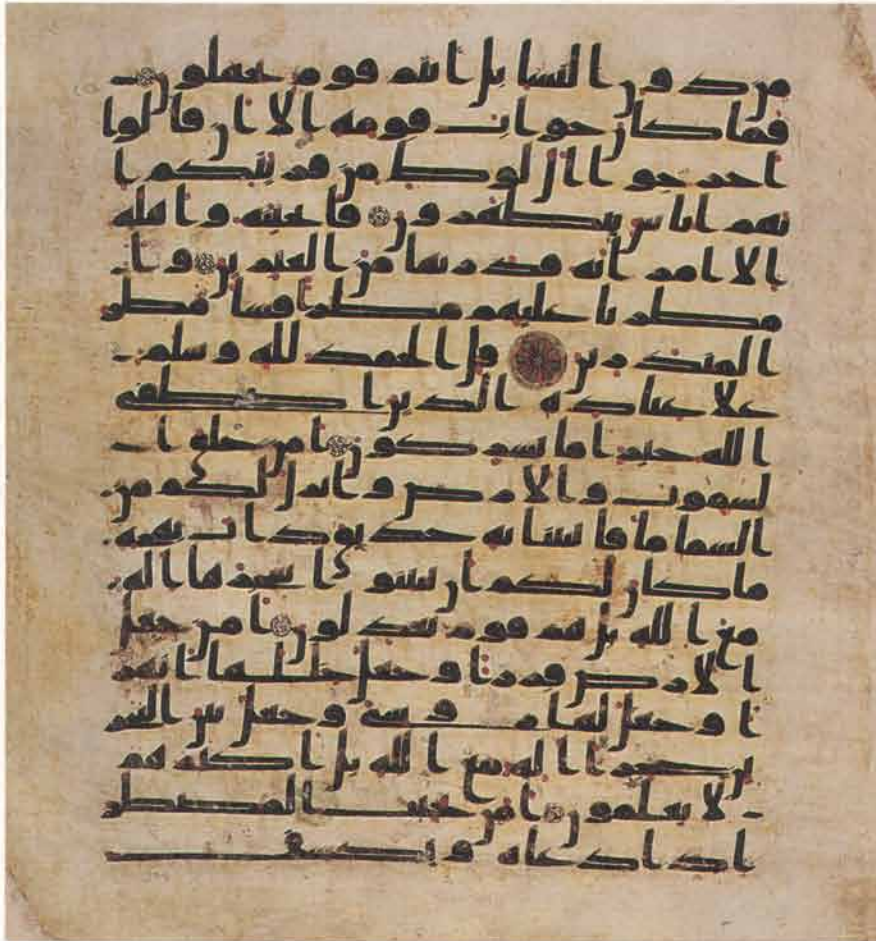 من دون النسا بل انتم قوم تجهلون
فما كان جواب قومه الا ان قالوا
اخرجوا ال لوط من قريتكم ا
نهم اناس يتطهرون فانجينه واهله
الا امراته قدرنها من الغبرين وا
مطرنا عليهم مطرا فسا مطر
المنذرين قل الحمد لله وسلم
علا عباده الذين اصطفى
الله خير اما يشركون امن خلق ا
لسموت والارض وانزل لكم من
السما ما فانبتنا به حدايق ذات بهجه
ما كان لكم ان تنبتوا شجرها اله
مع الله بل هم قوم يعدلون امن جعل
الارض قرارا وجعل خللها انهر
ا وجعل لها روسي وجعل بين البحر
ين حاجزا اله مع الله بل اكثرهم
لا يعلمون امن يجيب المضطر
اذا دعاه ويكشف